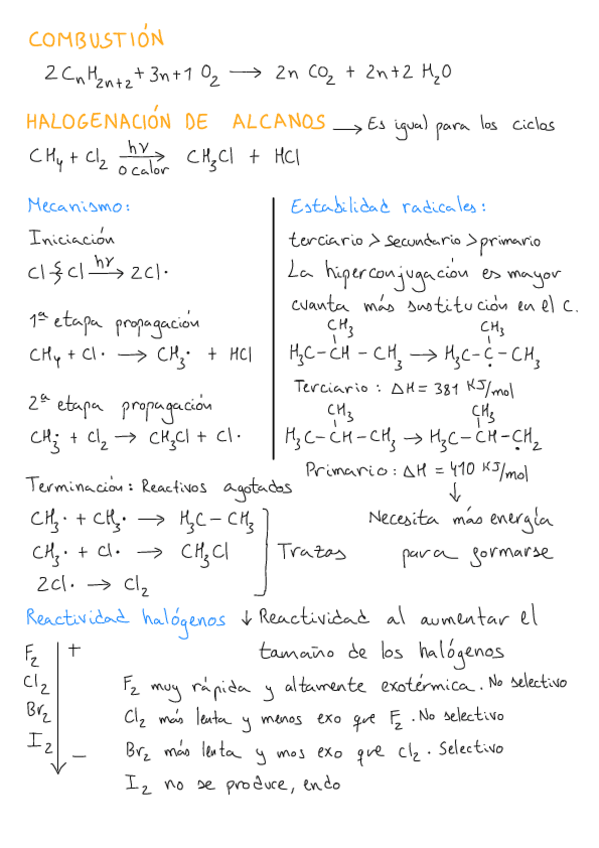 COMBUSTIÓN
2 CnH2n+2 + 3n+1 O2 → 2n CO2 + 2n+2 H2O
HALOGENACIÓN DE ALCANOS → Es igual para los ciclos
CH4 + Cl2 hν o calor → CH3Cl + HCl
Mecanismo:
Iniciación
Cl ⌇ Cl hν → 2Cl·
1ª etapa propagación
CH4 + Cl· → CH3· + HCl
2ª etapa propagación
CH3· + Cl2 → CH3Cl + Cl·
Estabilidad radicales:
terciario > secundario > primario
La hiperconjugación es mayor
cuanta más sustitución en el C.
CH3 CH3
H3C-CH-CH3 → H3C-C·-CH3
Terciario: ΔH = 381 KJ/mol
CH3 CH3
H3C-CH-CH3 → H3C-CH-CH2·
Primario: ΔH = 410 KJ/mol
↓
Necesita más energía
para formarse
Terminación: Reactivos agotados
CH3· + CH3· → H3C-CH3
CH3· + Cl· → CH3Cl
2Cl· → Cl2
Trazas
Reactividad halógenos ↓ Reactividad al aumentar el
tamaño de los halógenos
F2 +
Cl2
Br2
I2 −
F2 muy rápida y altamente exotérmica. No selectivo
Cl2 más lenta y menos exo que F2. No selectivo
Br2 más lenta y mos exo que Cl2. Selectivo
I2 no se produce, endo